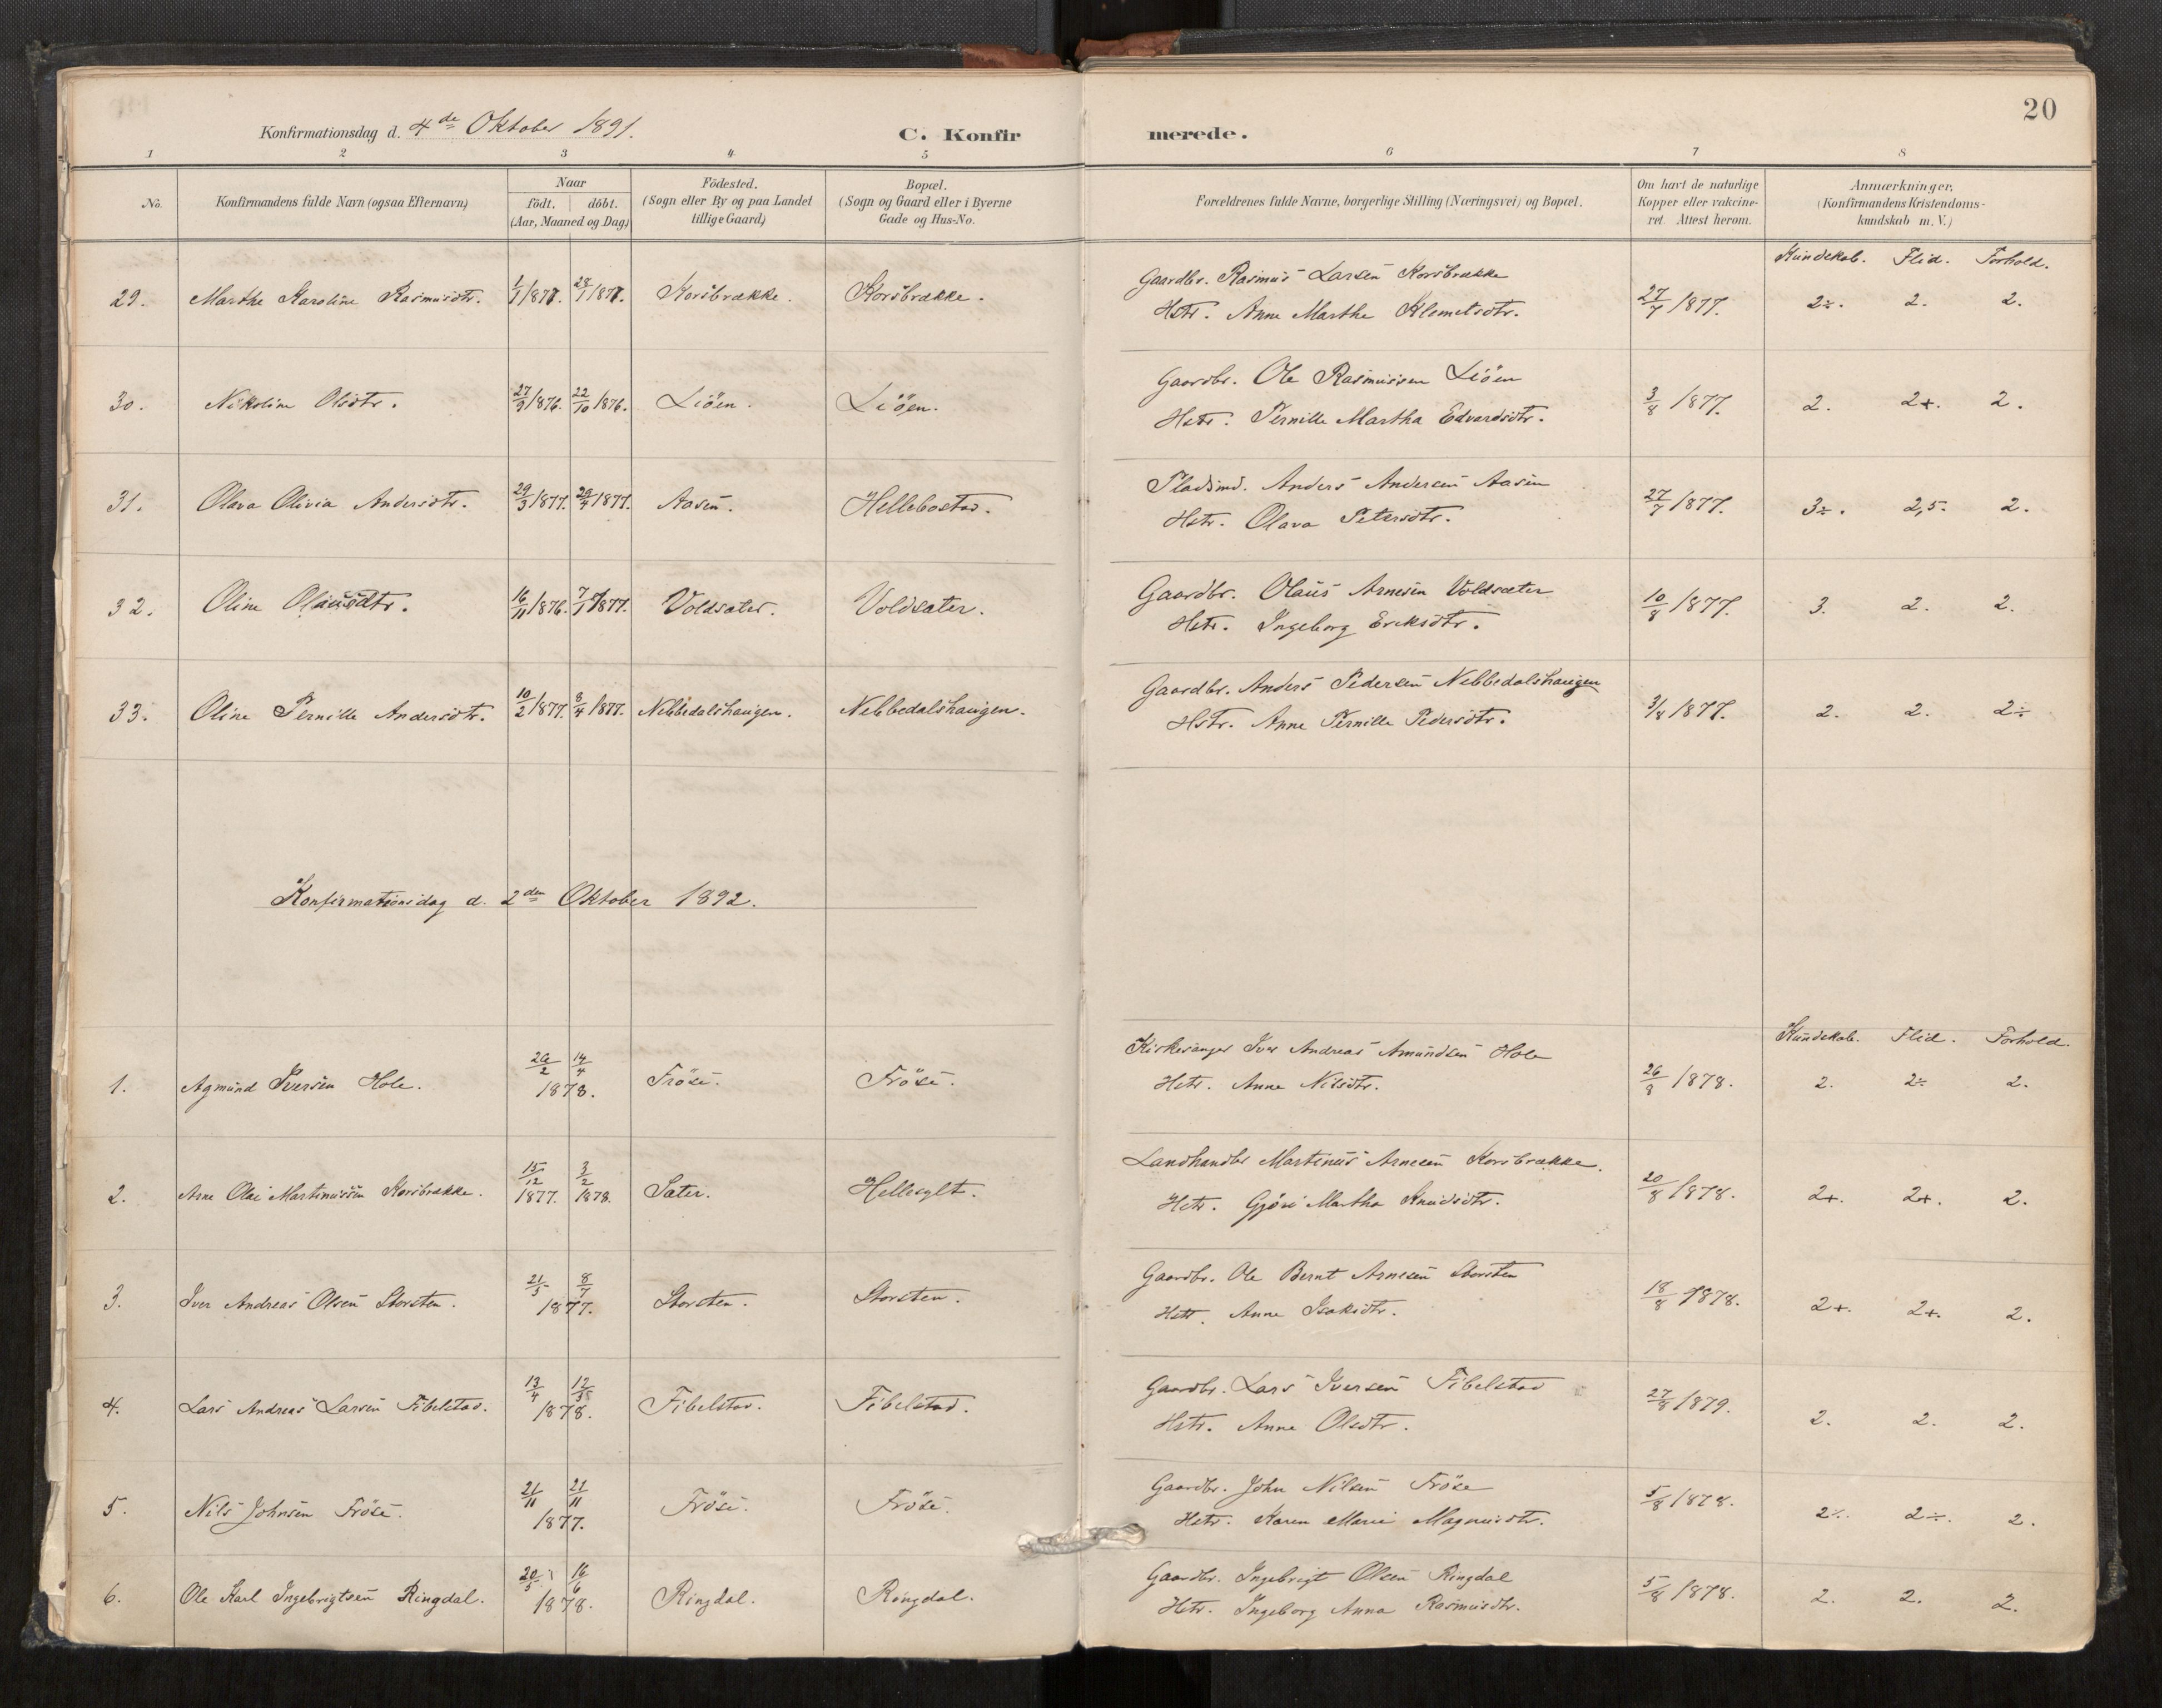 20
Konfirmationsdag d. 4de Oktober 1891.
C. Konfirmerede.
1 2 3 4 5 6 7 8
No.
Konfirmandens fulde Navn (ogsaa Efternavn)
Naar
födt. döbt.
(Aar, Maaned og Dag)
Födested.
(Sogn eller By og paa Landet
tillige Gaard)
Bopæl.
(Sogn og Gaard eller i Byerne
Gade og Hus-No.
Forældrenes fulde Navne, borgerlige Stilling (Næringsvei) og Bopæl.
Om havt de naturlige
Kopper eller vakcine-
ret. Attest herom.
Anmærkninger,
(Konfirmandens Kristendoms-
kundskab m. V.)
Kundskab. Flid. Forhold.
Gaardbr. Rasmus Larsen Korsbrække
29. Marthe Karoline Rasmusdtr. 1/1 1877. 28/1 1877. Korsbrække. Korsbrække. Hstr. Anne Marthe Klemetsdtr. 27/7 1877. 2÷. 2. 2.
Gaardbr. Ole Rasmussen Liöen
30. Nikoline Olsdtr. 27/9 1876. 22/10 1876. Liöen. Liöen. Hstr. Pernille Martha Edvardsdtr. 3/8 1877. 2. 2+. 2.
Pladsmd. Anders Andersen Aasen
31. Olava Olivia Andersdtr. 29/3 1877. 29/4 1877. Aasen. Hellebostad. Hstr. Olava Petersdtr. 27/7 1877. 3÷. 2,5. 2.
Gaardbr. Olaus Arnesen Voldsæter
32. Oline Olausdtr. 16/11 1876. 7/1 1877. Voldsæter. Voldsæter. Hstr. Ingeborg Eriksdtr. 10/8 1877. 3. 2. 2.
Gaardbr. Anders Pedersen Nebbedalshaugen
33. Oline Pernille Andersdtr. 10/2 1877. 8/4 1877. Nebbedalshaugen. Nebbedalshaugen. Hstr. Anne Pernille Pedersdtr. 3/8 1877. 2. 2. 2÷
Konfirmationsdag d. 2den Oktober 1892.
Kundskab. Flid. Forhold.
Kirkesanger Iver Andreas Amundsen Hole
1. Agmund Iversen Hole. 26/2 14/4 1878. Fröse. Fröse. Hstr. Anne Nilsdtr. 26/8 1878. 2. 2÷ 2.
Landhandler Martinus Arnesen Korsbrække.
2. Arne Olai Martinussen Korsbrække. 15/12 1877. 3/2 1878. Sæter. Hellesylt. Hstr. Gjöri Martha Knudsdtr. 20/8 1878. 2+. 2+. 2.
Gaardbr. Ole Bernt Arnesen Storsten
3. Iver Andreas Olsen Storsten. 21/5 8/7 1877. Storsten. Storsten. Hstr. Anne Isaksdtr. 18/8 1878. 2+. 2+. 2.
Gaardbr. Lars Iversen Fibelstad
4. Lars Andreas Larsen Fibelstad. 13/4 12/5 1878. Fibelstad. Fibelstad. Hstr. Anne Olsdtr. 27/8 1879. 2. 2. 2.
Gaardbr. John Nilsen Fröse
5. Nils Johnsen Fröse. 21/11 21/11 1877. Fröse. Fröse. Hstr. Karen Marie Magnusdtr. 5/8 1878. 2÷. 2÷. 2.
Gaardbr. Ingebrigt Olsen Ringdal
6. Ole Karl Ingebrigtsen Ringdal. 20/5 16/6 1878. Ringdal. Ringdal. Hstr. Ingeborg Anna Rasmusdtr. 5/8 1878. 2. 2. 2.